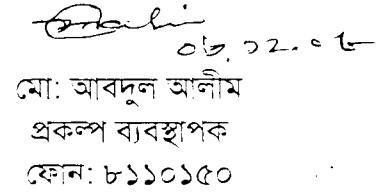 ০৬.১২.০৮
মো: আবদুল আলীম
প্রকল্প ব্যবস্থাপক
ফোন: ৮১১০১৫০